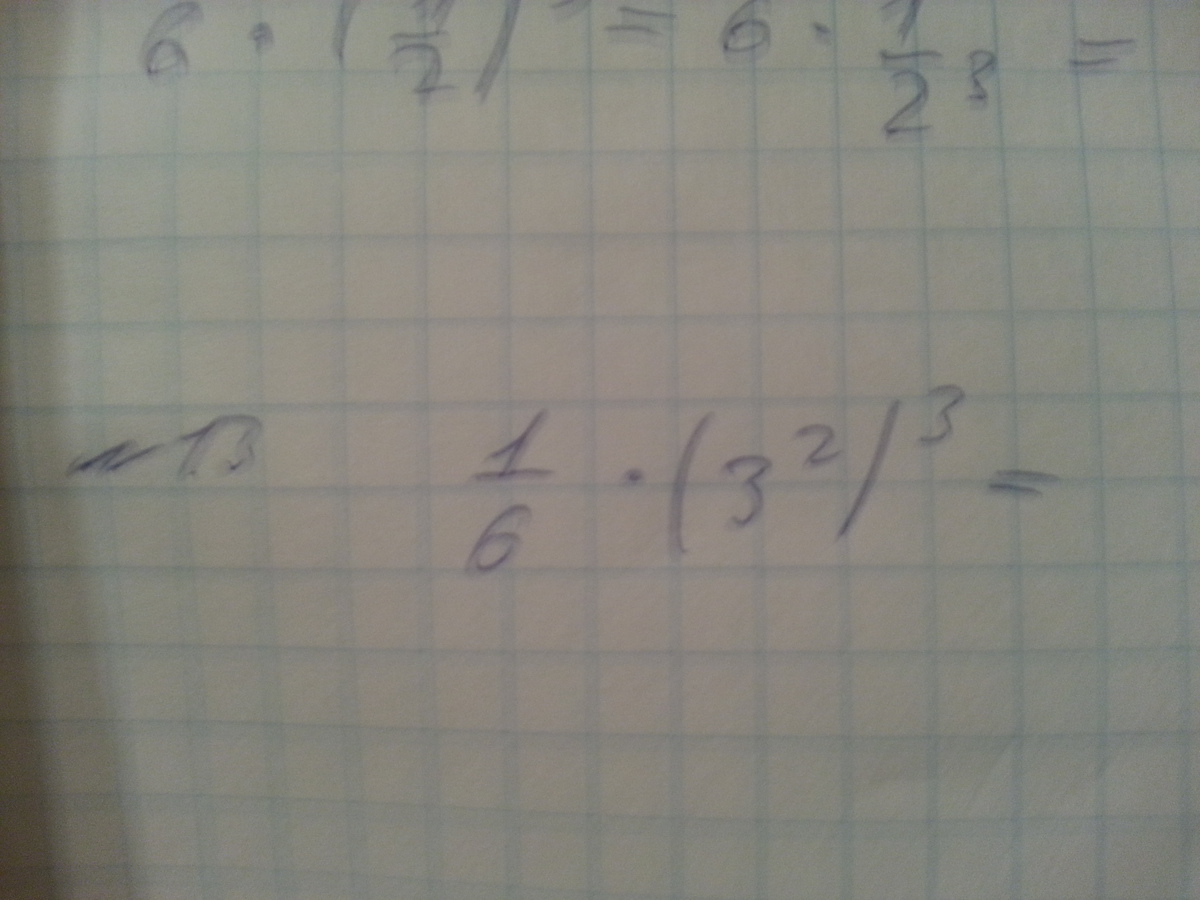 6 · (1/2)³ = 6 · 1/2³ =
№13 1/6 · (3²)³ =